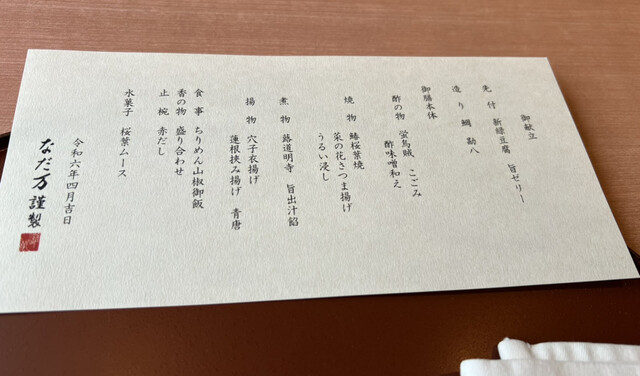 御献立
先付 新緑豆腐 旨ゼリー
造り 鯛 勘八
御膳本体
酢の物 蛍烏賊 こごみ
酢味噌和え
焼物 鰆桜葉焼
菜の花さつま揚げ
うるい浸し
煮物 蕗道明寺 旨出汁餡
揚物 穴子衣揚げ
蓮根挟み揚げ 青唐
食事 ちりめん山椒御飯
香の物 盛り合わせ
止椀 赤だし
水菓子 桜葉ムース
令和六年四月吉日
なだ万 謹製